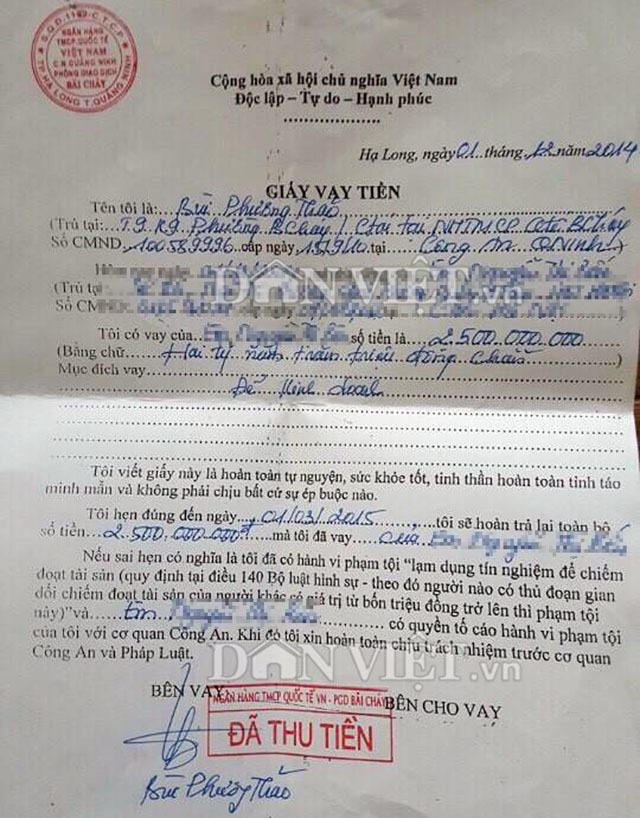 S.Q.D:1162-C.T.C.P.
NGÂN HÀNG
TMCP QUỐC TẾ
VIỆT NAM
C.N QUẢNG NINH
PHÒNG GIAO DỊCH
BÃI CHÁY
TP.HẠ LONG T.QUẢNG NINH
Cộng hòa xã hội chủ nghĩa Việt Nam
Độc lập – Tự do – Hạnh phúc
Hạ Long, ngày 01 tháng 12 năm 2014
GIẤY VAY TIỀN
Tên tôi là: Bùi Phương Thảo
(Trú tại: T9 K9 Phường BCháy / NHTMCP BCháy
Số CMND 100589996 cấp ngày tại Công an QNinh)
(Trú tại
Số CMND
DÂN VIỆT.vn
Tôi có vay của Nguyễn Thị số tiền là 2.500.000.000
(Bằng chữ Hai tỷ năm trăm triệu đồng chẵn)
Mục đích vay
Để Kinh doanh
Tôi viết giấy này là hoàn toàn tự nguyện, sức khỏe tốt, tinh thần hoàn toàn tỉnh táo
minh mẫn và không phải chịu bất cứ sự ép buộc nào.
Tôi hẹn đúng đến ngày 01/03/2015, tôi sẽ hoàn trả lại toàn bộ
số tiền 2.500.000.000đ mà tôi đã vay của
Nếu sai hẹn có nghĩa là tôi đã có hành vi phạm tội “lạm dụng tín nghiệm để chiếm
đoạt tài sản (quy định tại điều 140 Bộ luật hình sự - theo đó người nào có thủ đoạn gian
dối chiếm đoạt tài sản của người khác có giá trị từ bốn triệu đồng trở lên thì phạm tội
này)”và Em có quyền tố cáo hành vi phạm tội
của tôi với cơ quan Công An. Khi đó tôi xin hoàn toàn chịu trách nhiệm trước cơ quan
Công An và Pháp Luật.
DÂN VIỆT.vn
BÊN VAY
BÊN CHO VAY
NGÂN HÀNG TMCP QUỐC TẾ VN - PGD BÃI CHÁY
ĐÃ THU TIỀN
Bùi Phương Thảo